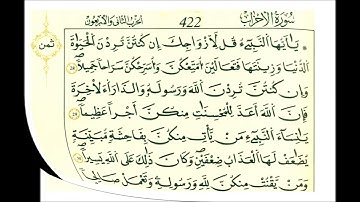 سُورَةُ الأَحْزَابِ 422 الحزب الثاني والأربعون
ثمن
يَٰٓأَيُّهَا ٱلنَّبِيٓءُ قُل لِّأَزْوَٰجِكَ إِن كُنتُنَّ تُرِدْنَ ٱلْحَيَوٰةَ
ٱلدُّنْيَا وَزِينَتَهَا فَتَعَالَيْنَ أُمَتِّعْكُنَّ وَأُسَرِّحْكُنَّ سَرَاحًا جَمِيلًا
وَإِن كُنتُنَّ تُرِدْنَ ٱللَّهَ وَرَسُولَهُۥ وَٱلدَّارَ ٱلَاخِرَةَ
فَإِنَّ ٱللَّهَ أَعَدَّ لِلْمُحْسِنَٰتِ مِنكُنَّ أَجْرًا عَظِيمًا
يَٰنِسَآءَ ٱلنَّبِيٓءِ مَنْ يَّأْتِ مِنكُنَّ بِفَٰحِشَةٍ مُّبَيِّنَةٍ
يُضَٰعَفْ لَهَا ٱلْعَذَابُ ضِعْفَيْنِ وَكَانَ ذَٰلِكَ عَلَى ٱللَّهِ يَسِيرًا
وَمَنْ يَّقْنُتْ مِنكُنَّ لِلَّهِ وَرَسُولِهِۦ وَتَعْمَلْ صَٰلِحًا